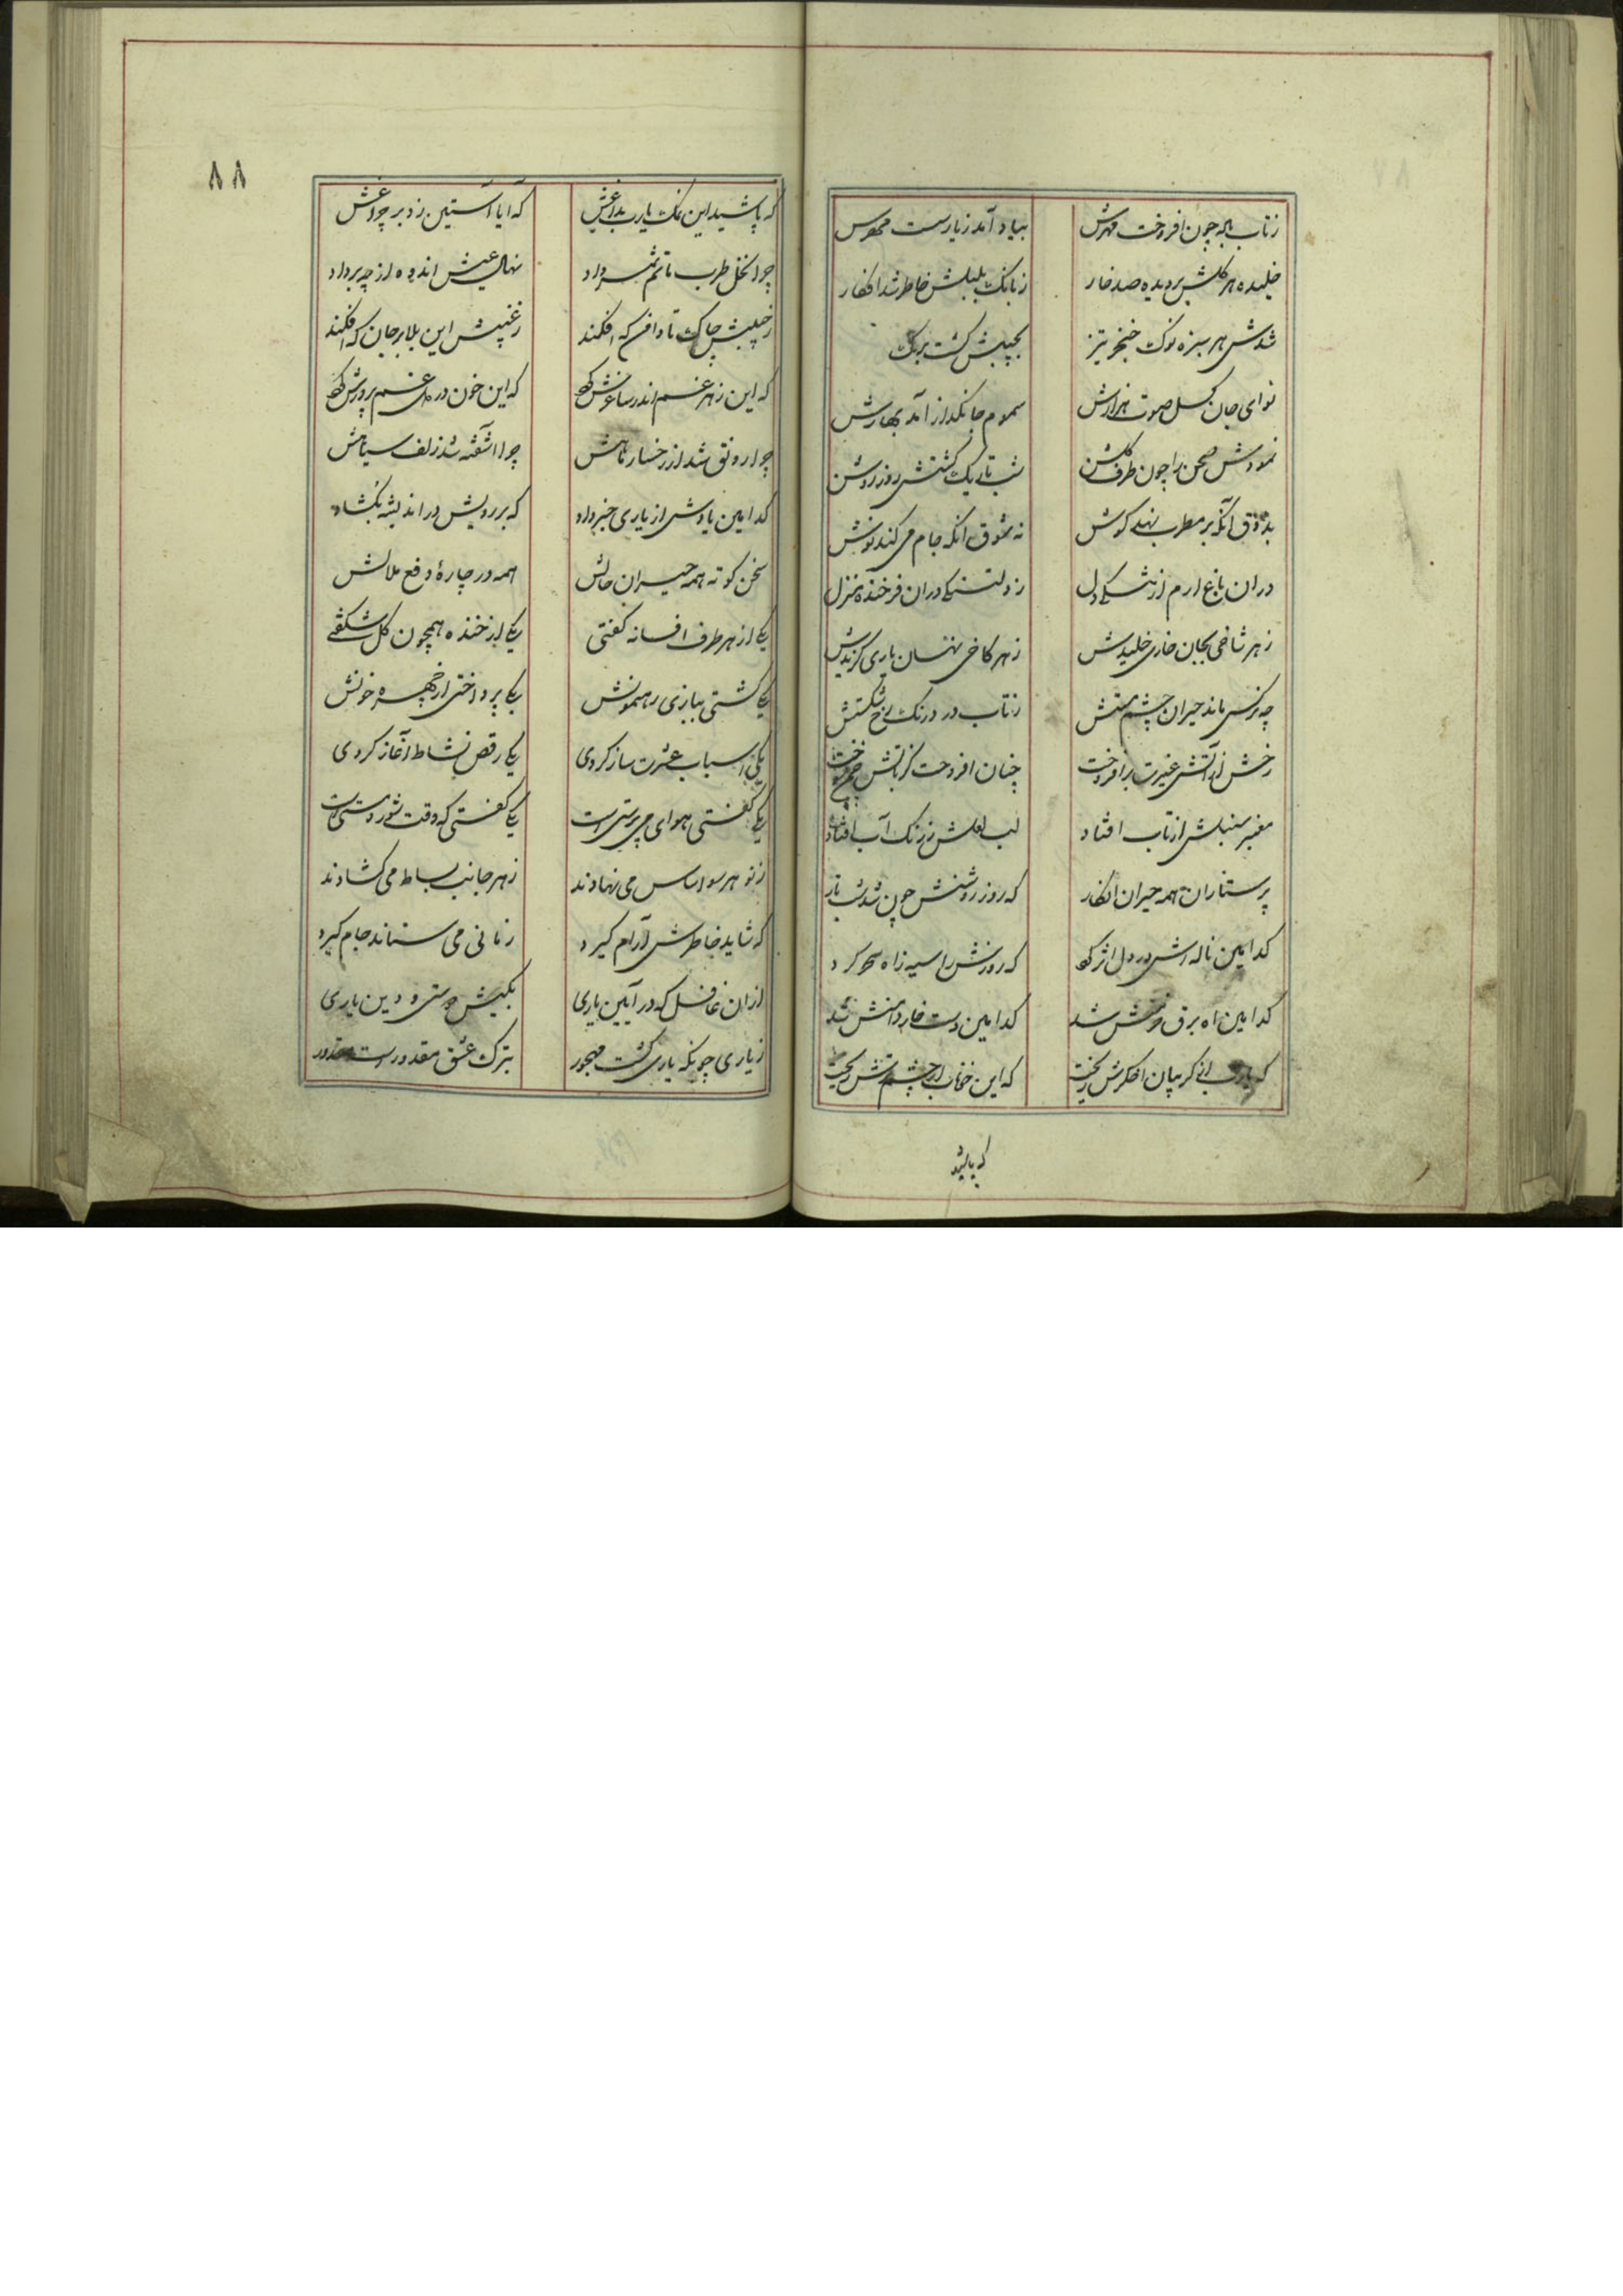 زتاب باده چون افروخت مهرش
بیاد آمد زیارست مهرش
خلیده هر گلش بر دیده صد خار
زبانگ بلبلش خاطر شد افکار
شدش هر سبزه نوک خنجر تیز
بچیبش گشت برگ
نوای جان گسل صوت هزارش
سموم جانگداز آمد بهارش
نمودش صحن باغ چون طرف گلشن
شب تاریک گشتش روز روشن
بذوق آنکه بر مطرب نهد گوش
نه شوق آنکه جام می کند نوش
دران باغ ارم از تنگی دل
ز دلتنگی دران فرخنده منزل
ز هر شاخی بجان خاری خلیدش
ز هر کاخی نهان ماری گزیدش
چو نرگس ماند حیران چشم مستش
زتاب در درنگ رخ شکستش
رخش از آتش غیرت برافروخت
چنان افروخت کز تابش
معنبر سنبلش از تاب افتاد
لب لعلش ز رنگ آب افتاد
پرستاران همه حیران افکار
که روز روشنش چون شد شب تار
کدامین ناله اش در دل اثر کرد
که روزش را سیه ز آه سحر کرد
کدامین آه برق خرمنش شد
کدامین دست خار دامنش شد
که از گریبان اخگرش ریخت
که این خوناب از چشم ترش ریخت
که پاشید
٨٨
که پاشید این نمک یارب بداغش
که آیا آستین زد بر چراغش
چرا نخل طرب ماتم ثمر داد
نهال عیش اندوه از چه بر داد
ز جیبش چاک تا دامن که افکند
ز غیبش این بلا بر جان که افکند
که این زهر غم اندر ساغرش کرد
که این خون در می غم پرورش کرد
چرا رونق شد از رخسار ماهش
چرا آشفته شد زلف سیاهش
کدامین بادش از یاری خبر داد
که بر رویش در اندیشه بگشاد
سخن کوته همه حیران حالش
همه در چاره دفع ملالش
یکی از هر طرف افسانه گفتی
یکی از خنده همچون گل شکفتی
یکی گشتی ببازی رهنمونش
یکی پرداختی از چهره خونش
یکی اسباب عشرت ساز کردی
یکی رقص نشاط آغاز کردی
یکی گفتی هوای می پرستی است
یکی گفتی که وقت شور و مستی است
ز نو هر سو اساس می نهادند
ز هر جانب بساط می گشادند
که شاید خاطرش آرام گیرد
زمانی می ستاند جام گیرد
از آن غافل که در آیین یاری
بکیش دوستی و دین یاری
ز یاری چونکه یاری گشت مهجور
بترک عشق مقدورست